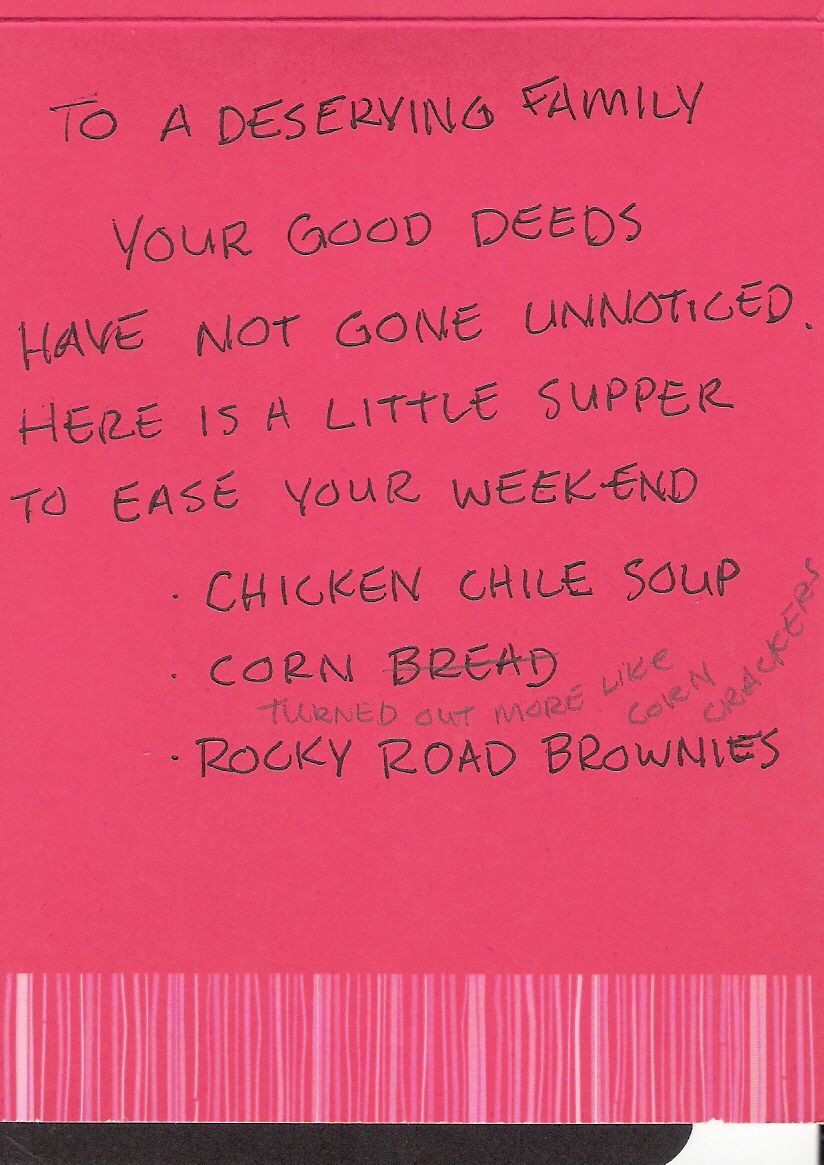 TO A DESERVING FAMILY
YOUR GOOD DEEDS
HAVE NOT GONE UNNOTICED.
HERE IS A LITTLE SUPPER
TO EASE YOUR WEEKEND
· CHICKEN CHILE SOUP
· CORN BREAD
TURNED OUT MORE LIKE CORN CRACKERS
· ROCKY ROAD BROWNIES